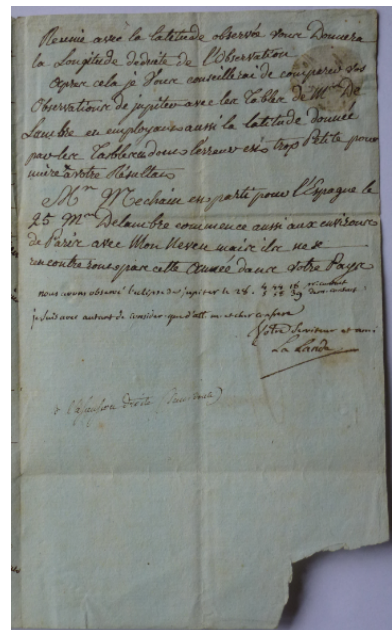 Réunie avec la latitude observée vous Donnera
la Longitude déduite de l'Observation
après cela je vous conseillerai de comparer vos
Observations de jupiter avec les Tables de Mr De
Lambre en employant aussi la latitude donnée
par les Tables dont l'erreur est trop Petite pour
nuire a votre Résultat
Mr Mechain est parti pour l'Espagne le
25 Mr Delambre commence aussi aux environs
de Paris avec Mon Neveu mais ils ne se
rencontreront pas cette année dans votre Pays
nous avons observé l'eclipse de jupiter le 28.
je suis avec autant de consideration que d'att mon cher confrere
Votre Serviteur et ami
La Lande